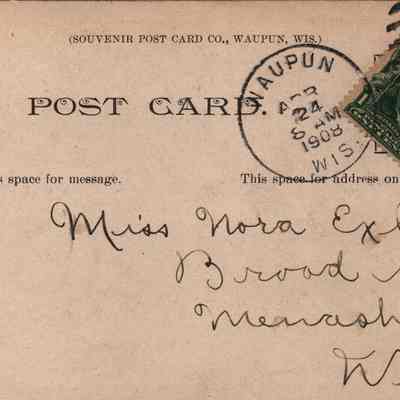 (SOUVENIR POST CARD CO., WAUPUN, WIS.)
WAUPUN
APR
24
8 AM
1908
WIS.
POST CARD.
s space for message.
This space for address on
Miss Nora Ex
Broad
Menash
W